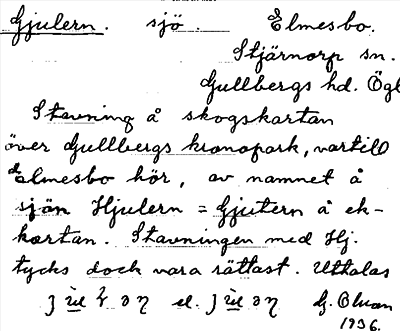 Gjulern. sjö. Elmesbo.
Stjärnorp sn.
Gullbergs hd. Ögl
Stavning å skogskartan
över Gullbergs kronopark, vartill
Elmesbo hör, av namnet å
sjön Hjulern = Gjutern å ek-
kartan. Stavningen med Hj.
tycks dock vara rättast. Uttalas
el. G.
1936.